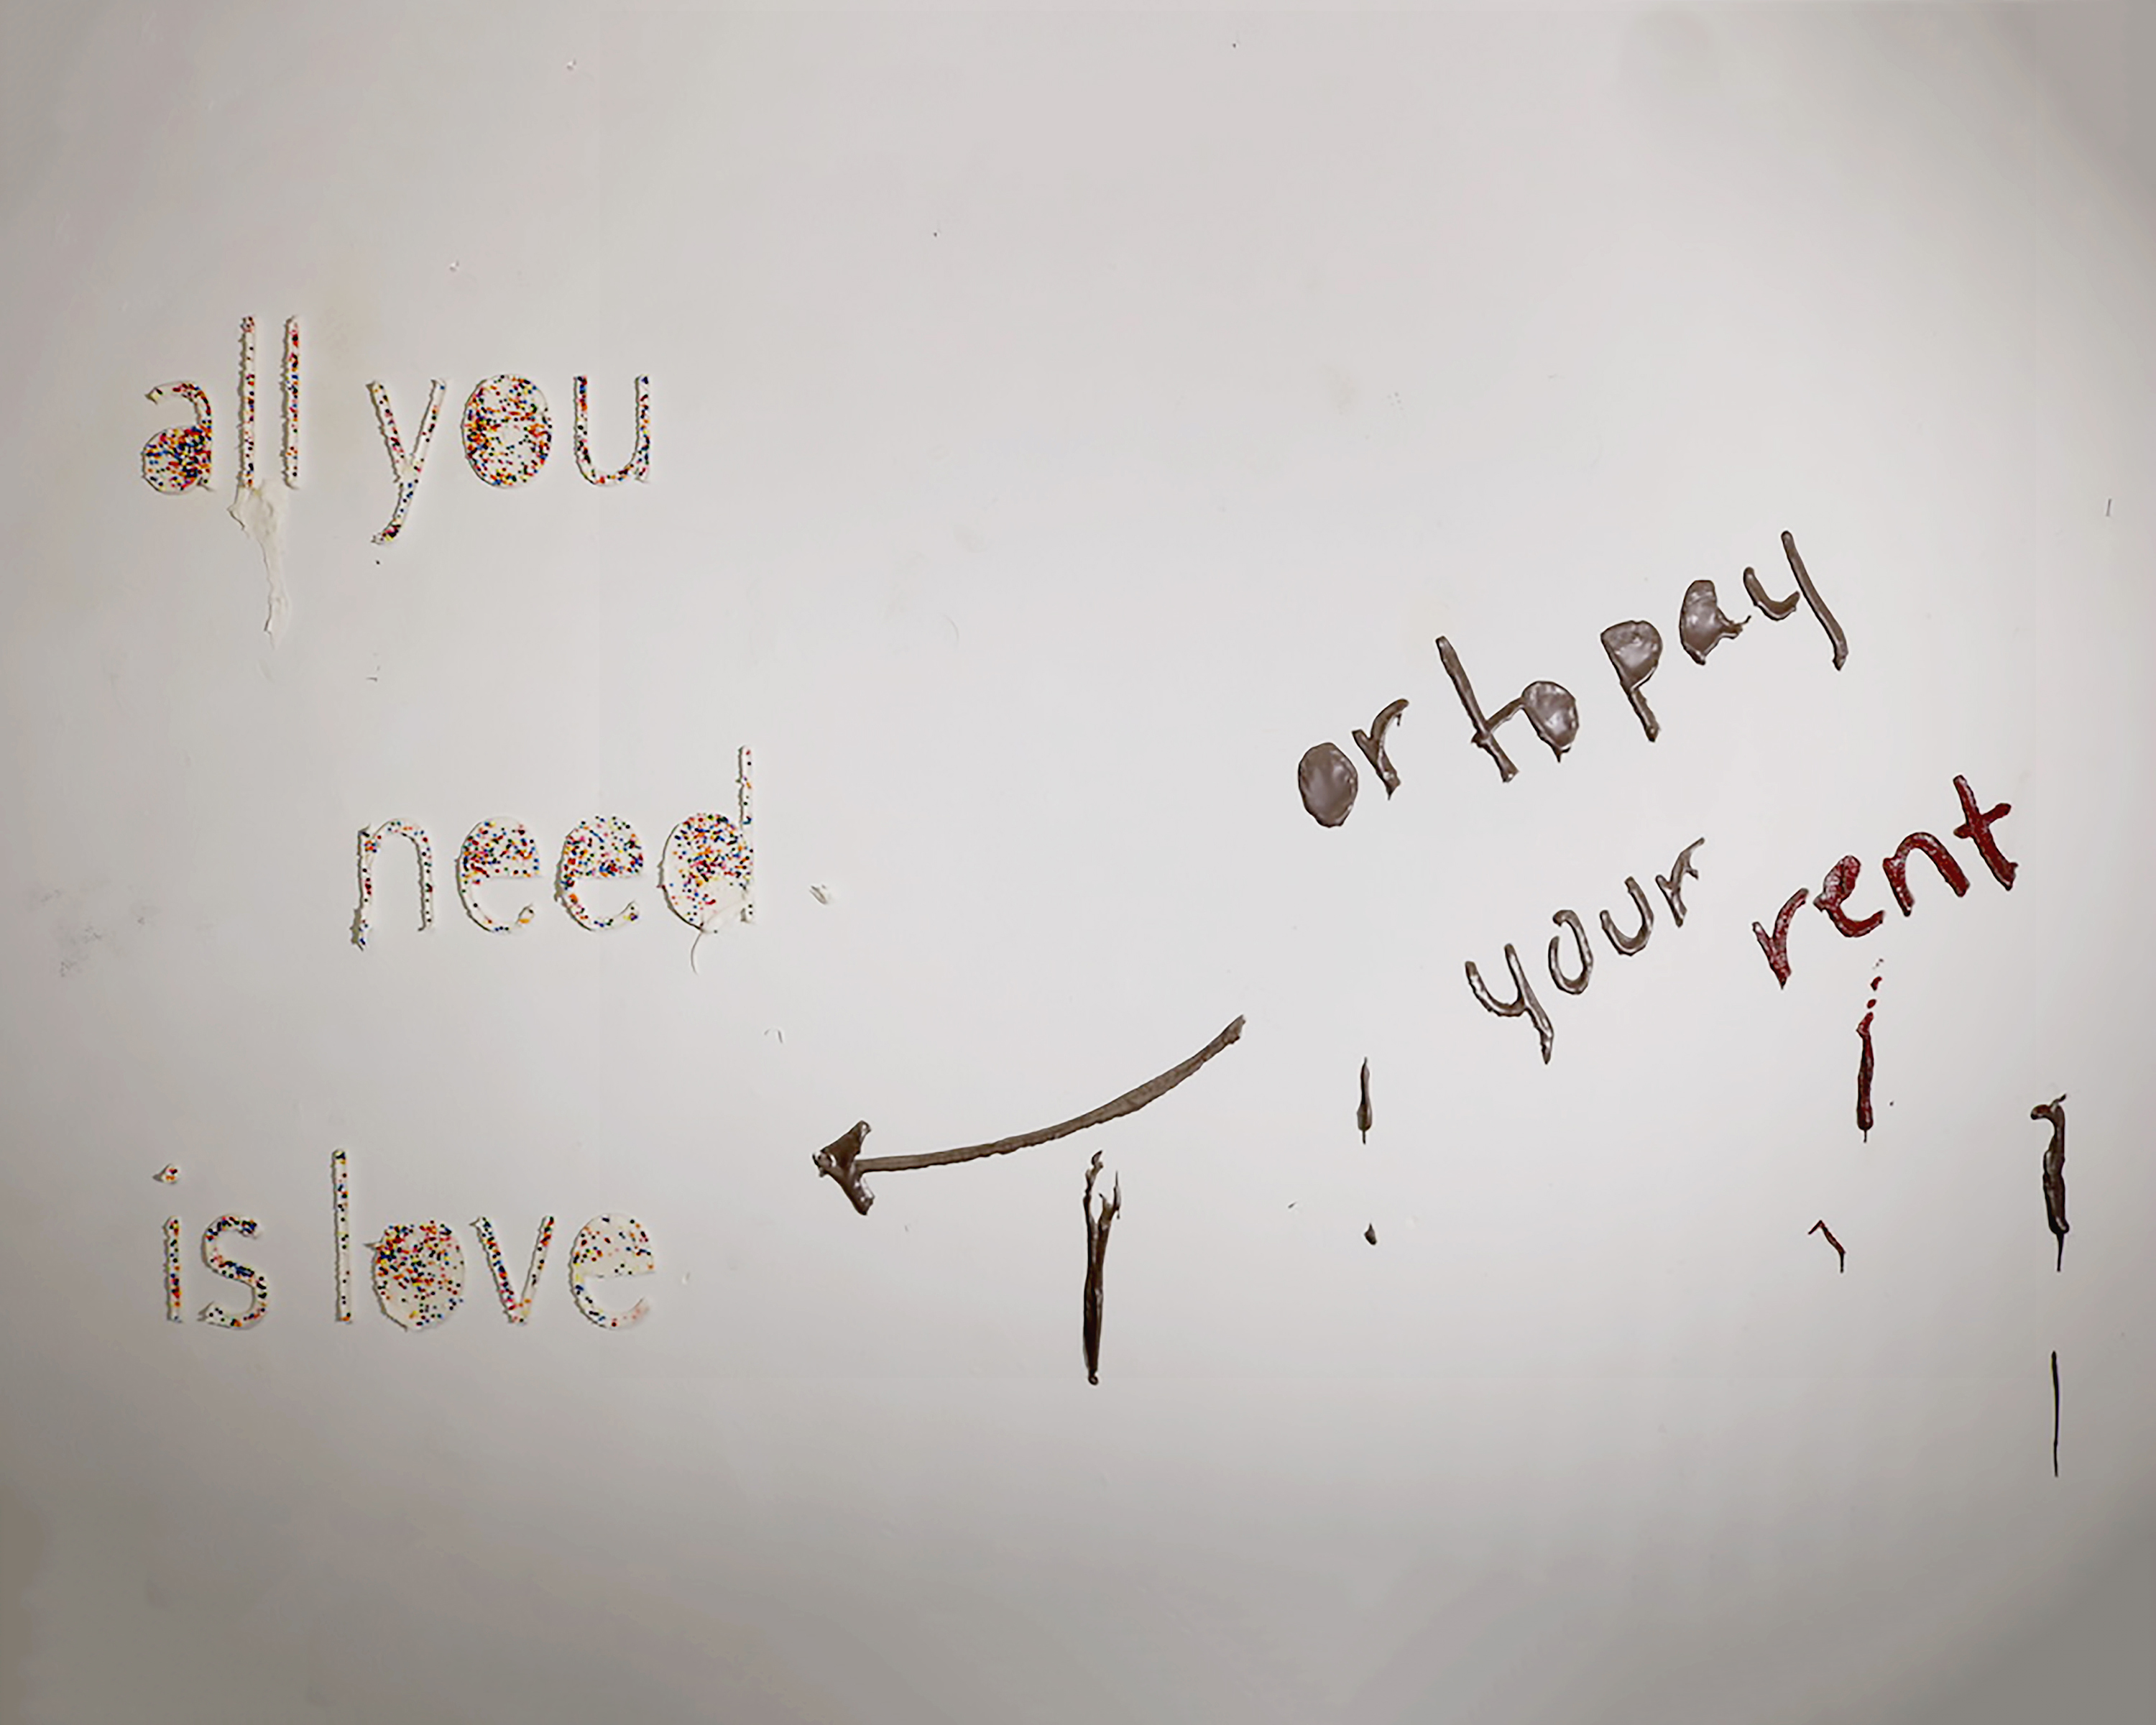 all you
need
is love
or to pay
your rent